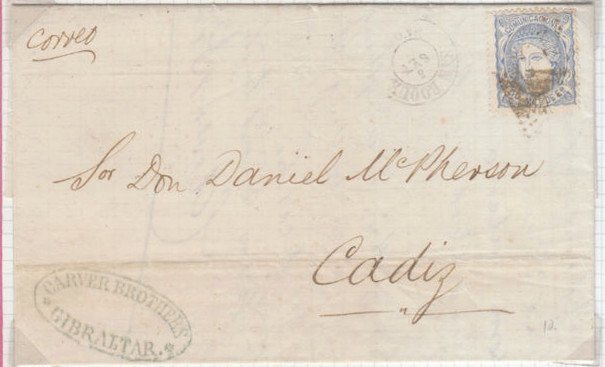 Correo
COMUNICACIONES
Sor Don Daniel McPherson
Cadiz
CARVER BROTHERS
GIBRALTAR.
10.